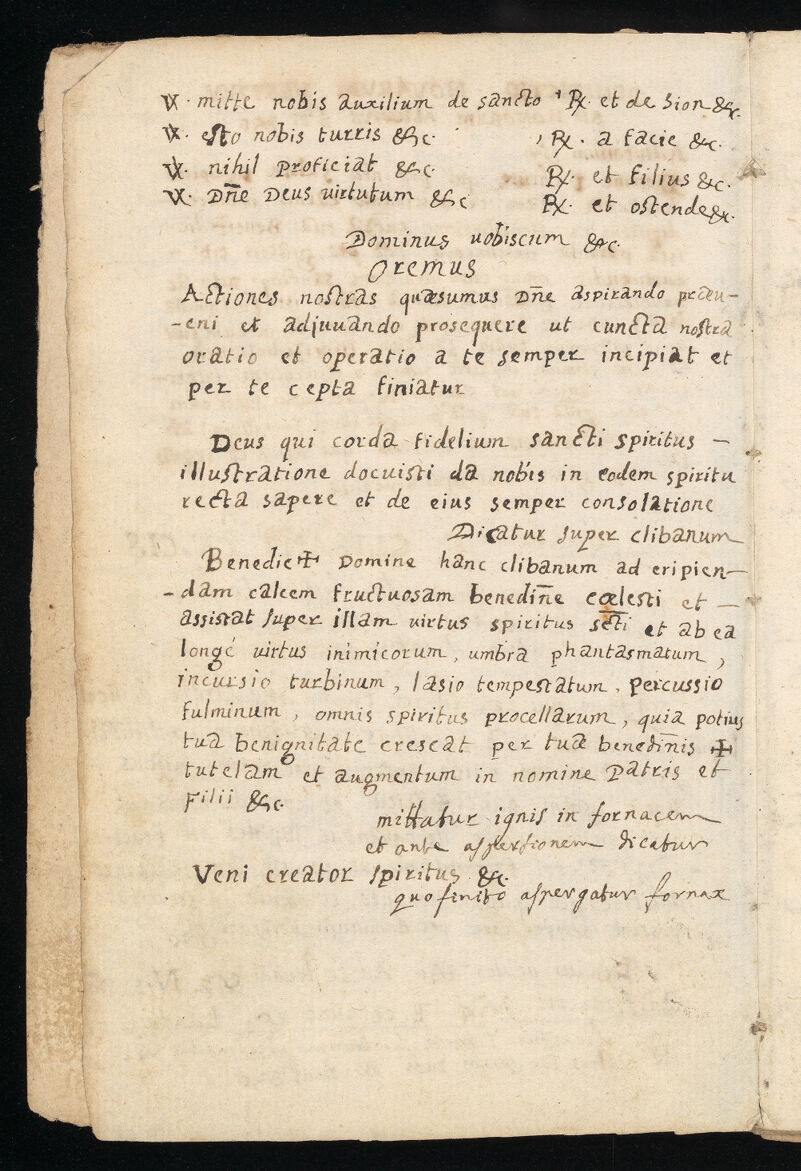 ℣. mitte nobis auxilium de sancto ℟. et de Sion &c.
℣. esto nobis turris &c. ℟. a facie &c.
℣. nihil proficiat &c. ℟. et filius &c.
℣. Dñe Deus virtutum &c ℟. et ostende &c.
Dominus uobiscum &c.
Oremus
Actiones nostras quæsumus Dñe aspirando præu-
-eni et adjuuando prosequere ut cuncta nostra
oratio et operatio a te semper incipiat et
per te cepta finiatur
Deus qui corda fidelium sancti spiritus –
illustratione docuisti da nobis in eodem spiritu
recta sapere et de eius semper consolatione
Dicatur super clibanum
Benedic ✠ Domine hanc clibanum ad eripien-
-dam calcem fructuosam benediñe cœlesti et –
assistat super illam virtus spiritus scti et ab ea
longé virtus inimicorum, umbra phantasmatum,
incursio turbinum, læsio tempestatum, percussio
fulminum, omnis spiritus procellarum, quia potius
tua benignitate crescat per tuæ benediñis ✠
tutelam et augmentum in nomine Patris et
Filii &c.
mittatur ignis in fornacem
et ante aspersionem dicatur
Veni creator spiritus &c.
quo finito aspergatur fornax